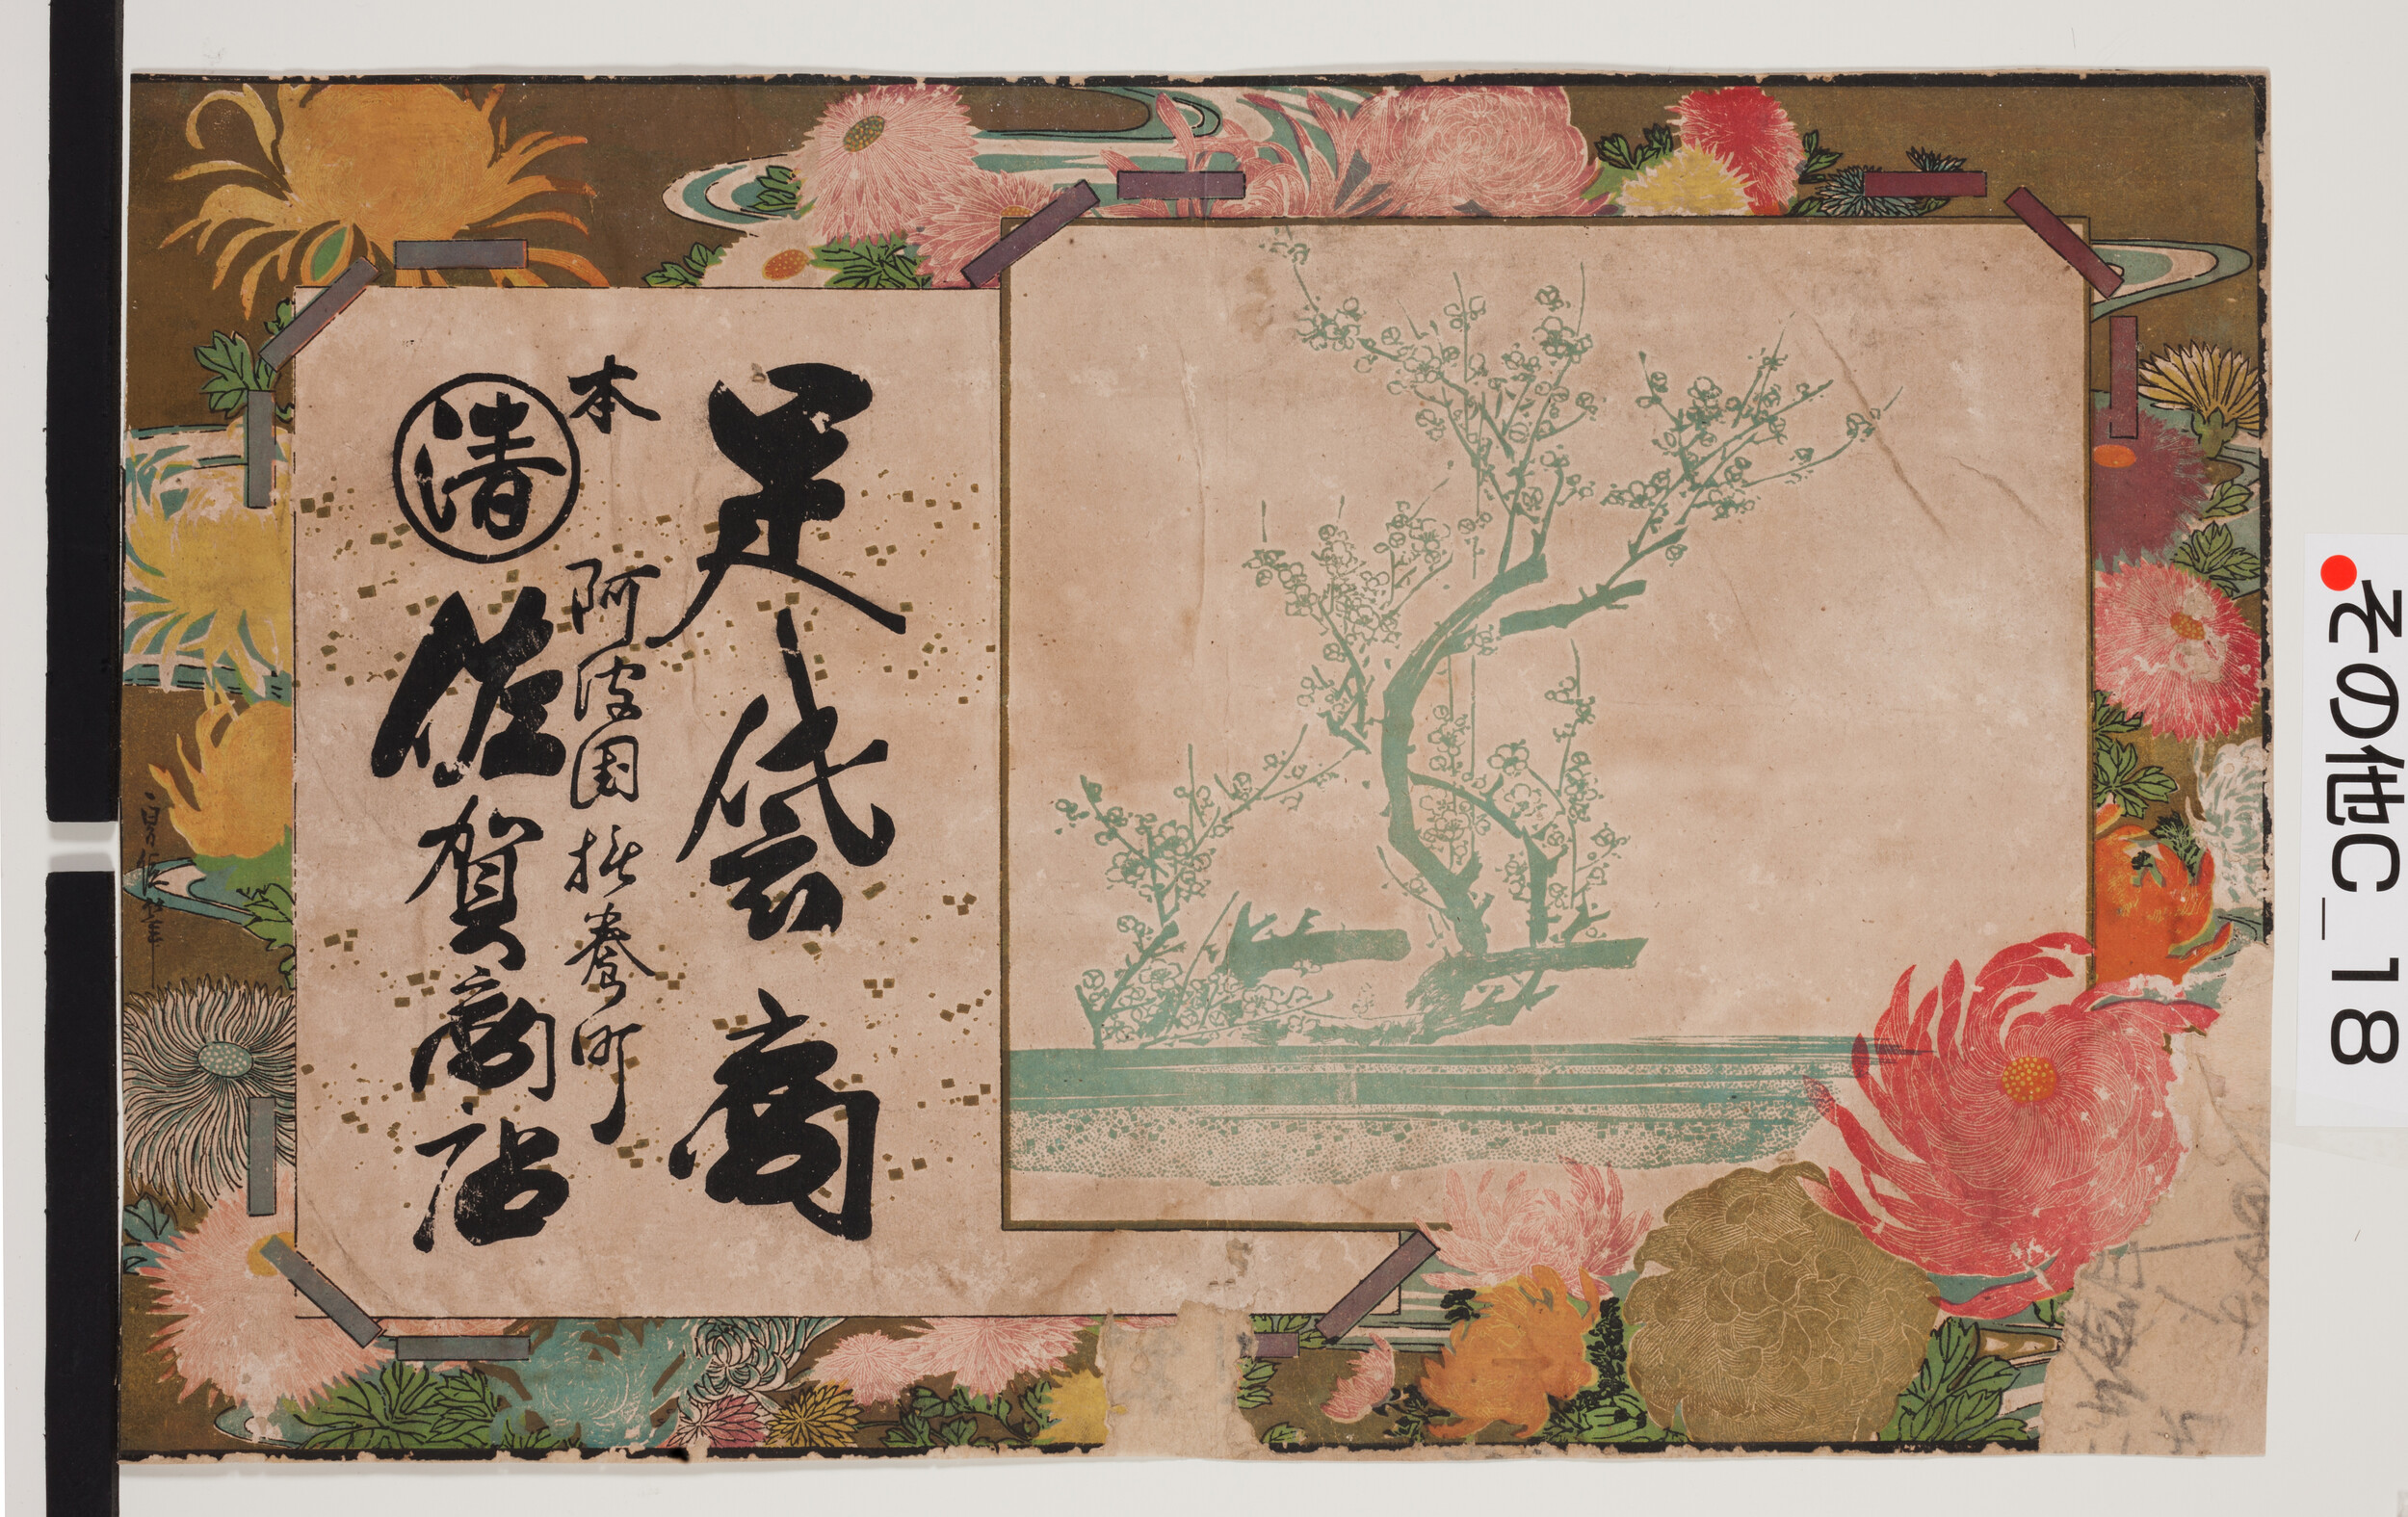 その他C_18
足袋商
本 阿波國撫養町
清 佐賀商店